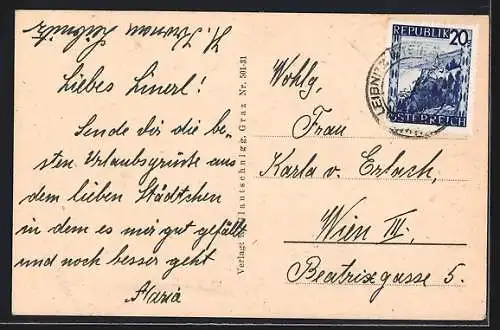 Liebes Linerl!
Sende dir die be-
sten Urlaubsgrüße aus
dem lieben Städtchen
in dem es mir gut gefällt
und noch besser geht
Maria
Leibnitz
Verlag Graz Nr. 501-31
REPUBLIK 20
ÖSTERREICH
LEIBNITZ
Wohlg.
Frau
Karla v. Erlach,
Wien III,
Beatrixgasse 5.